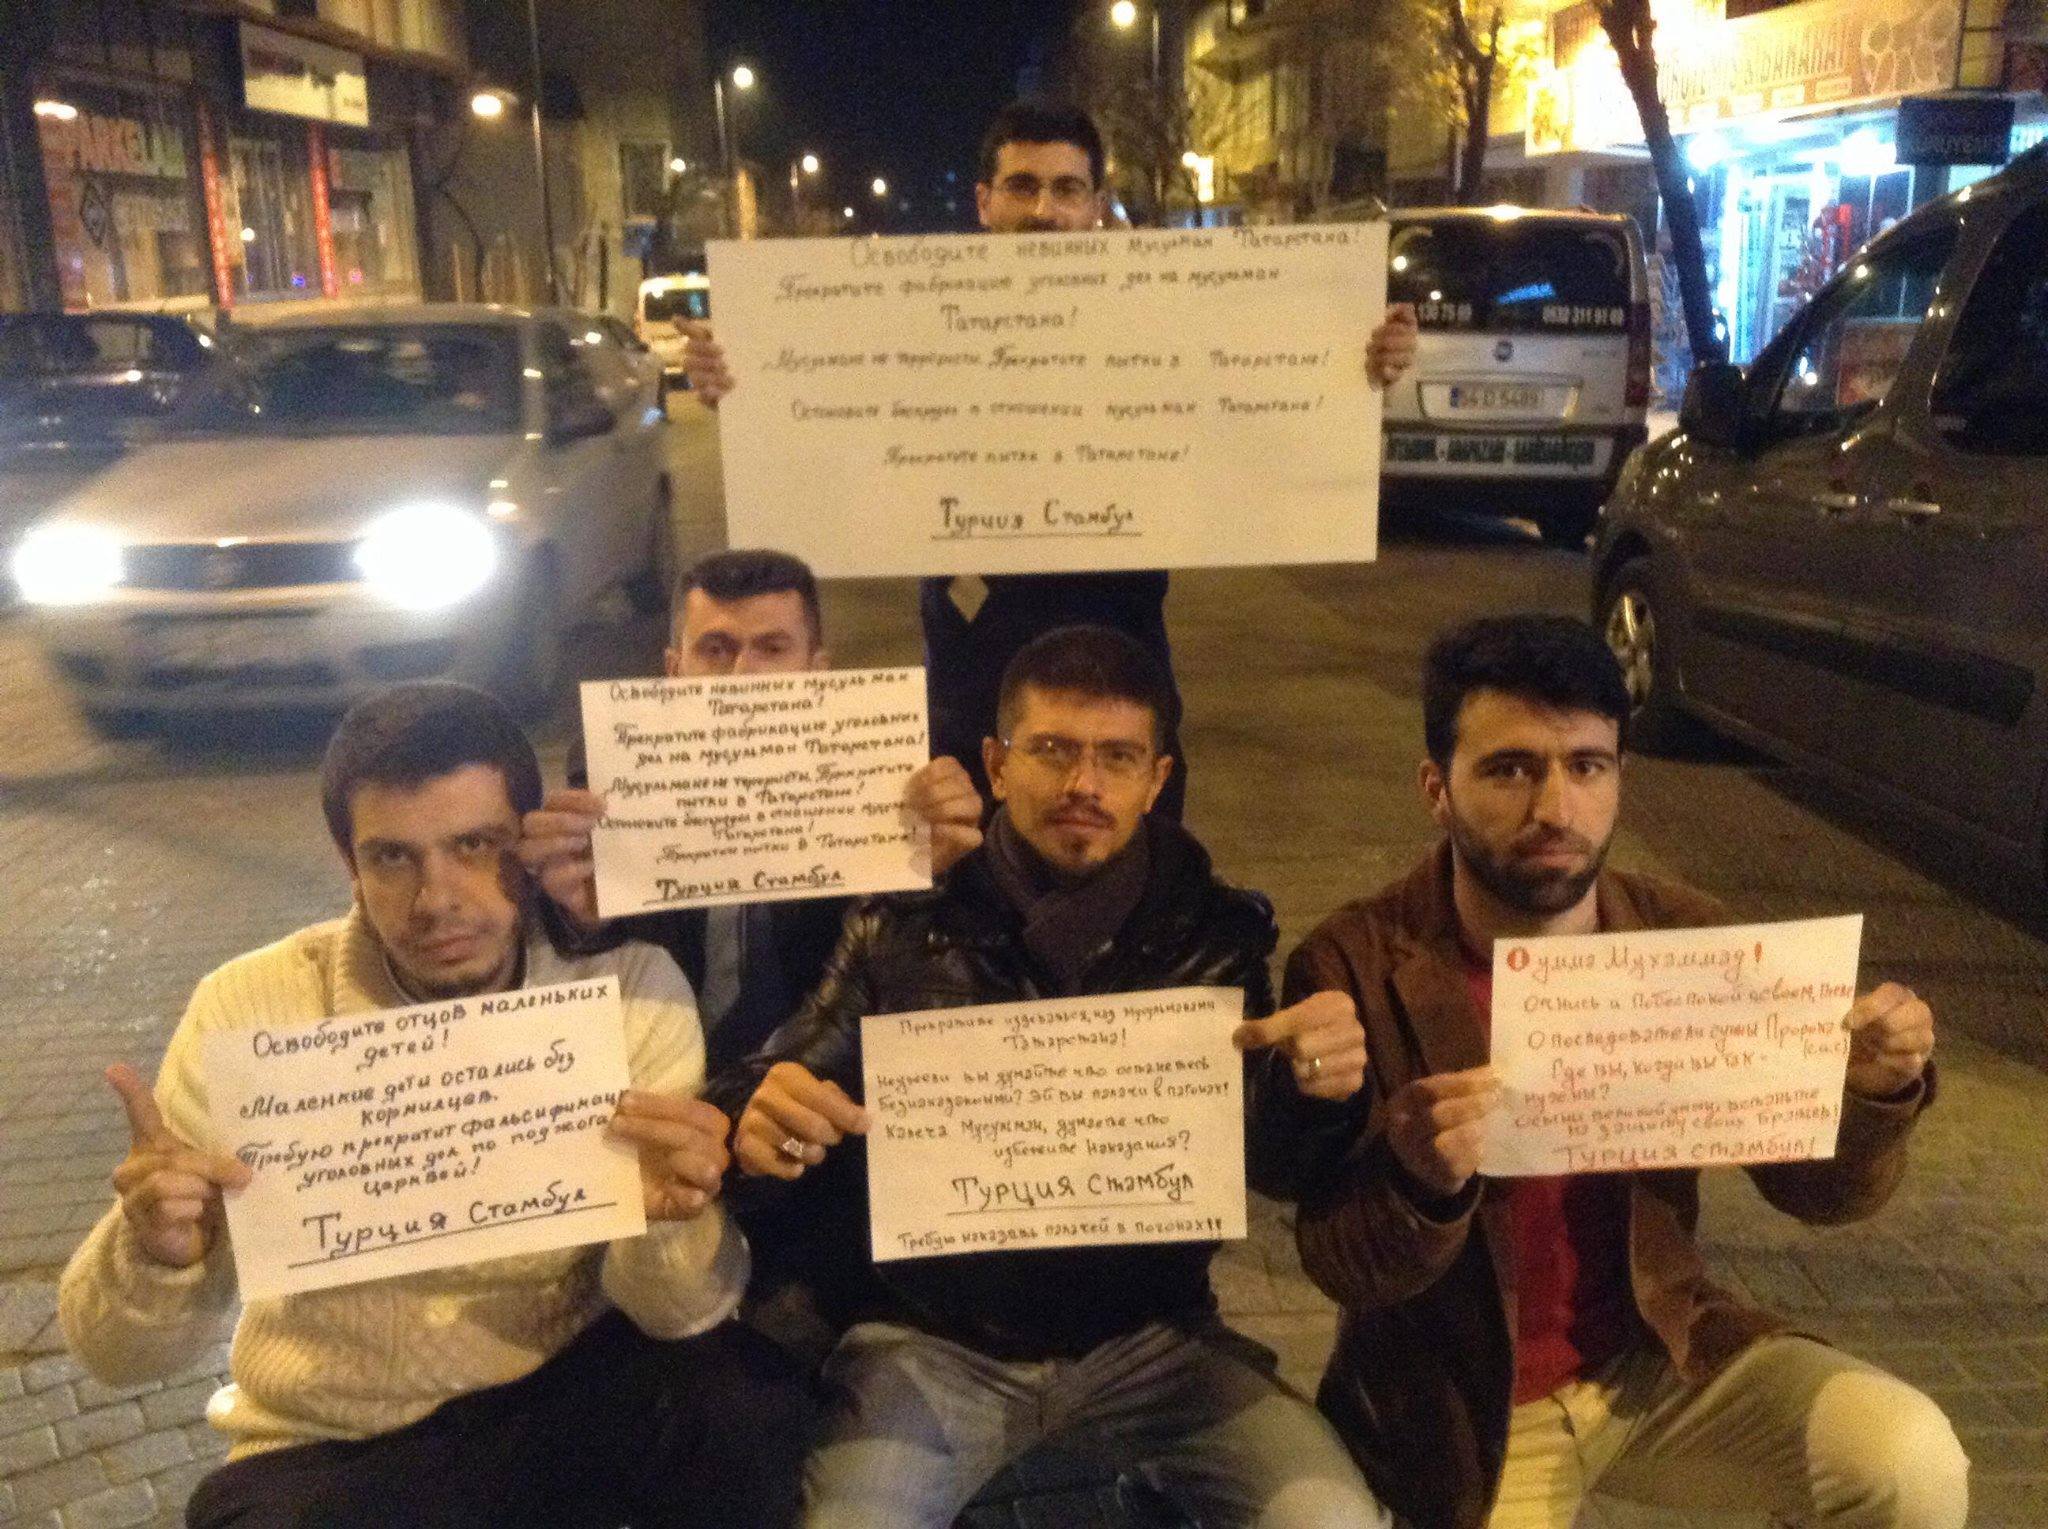 Освободите невинных мусульман Татарстана!
Прекратите фабрикацию уголовных дел на мусульман
Татарстана!
Мусульмане не террористы. Прекратите пытки в Татарстане!
Остановите беспредел в отношении мусульман Татарстана!
Прекратите пытки в Татарстане!
Турция Стамбул
Освободите невинных мусульман
Татарстана!
Прекратите фабрикацию уголовных
дел на мусульман Татарстана!
Мусульмане не терористы. Прекратите
пытки в Татарстане!
Остановите беспредел в отношении
Татарстана!
пытки в Татарстане!
Турция Стамбул
Освободите отцов маленьких
детей!
Маленкие дети остались без
кормилцев.
Требую прекратит фальсификац
уголовных дел по поджога
Церквей!
Турция Стамбул
Прекратите издеваться над мусульманами
Татарстана!
Неужели вы думайте что останетесь
безнаказанными? Эй вы палачи в пагонах!
Калеча Мусулман, думаете что
избежите наказания?
Турция Стамбул
Требую наказать палачей в погонах!!
О умма Мухаммад!
Очнись и побеспокойся о своем
О последователи сунны Пророка
(с.а.с)
Где вы, когда вы так
нужны?
великой уммы, встаньте
на защиту своих Братьев!
Турция Стамбул!
54 D 5489
130 75 69
0532 311 91 69